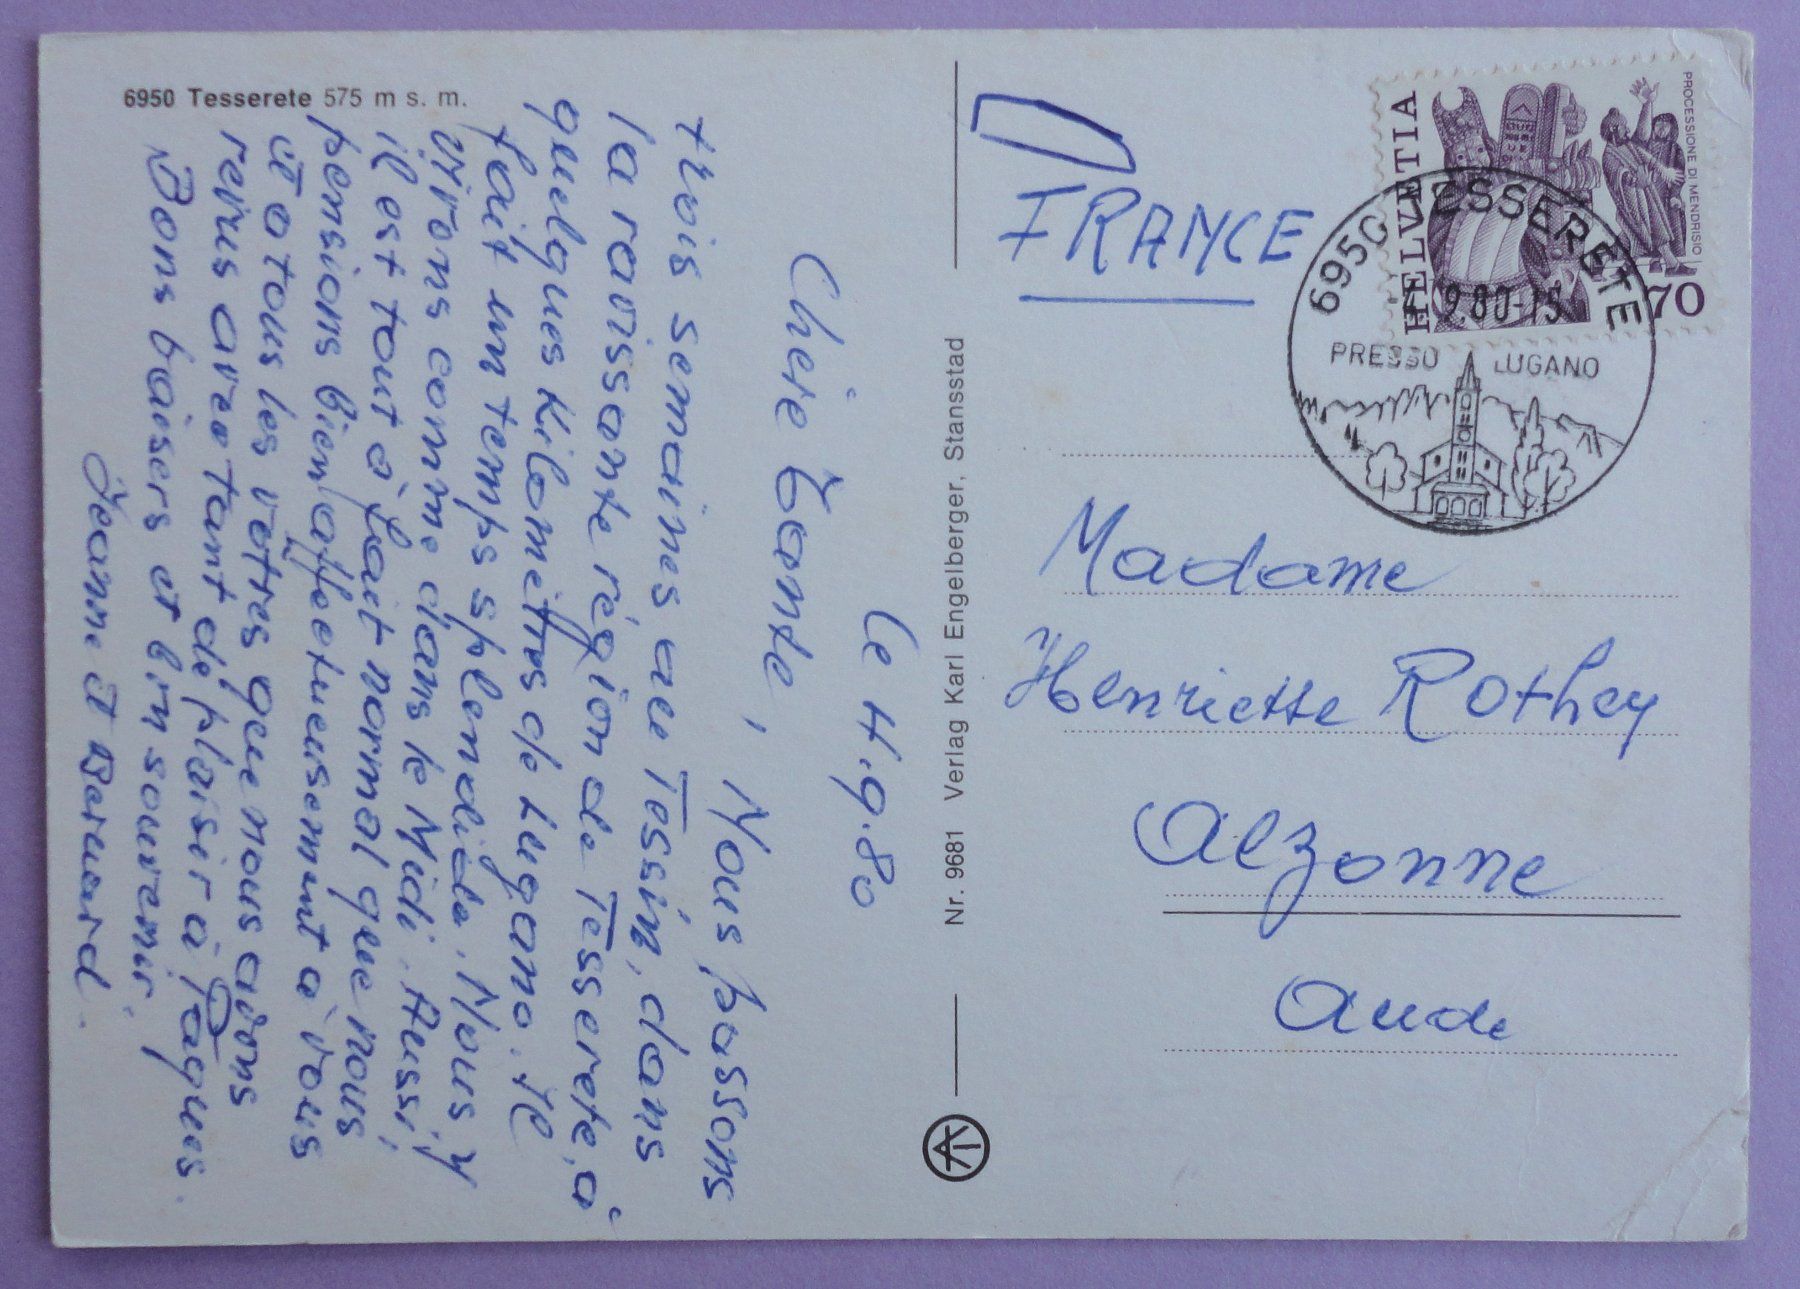 6950 Tesserete 575 m s. m.
le 4.9.80
Chère Tante,
Nous passons
trois semaines au Tessin, dans
la ravissante région de Tesserete, à
quelques kilomètres de Lugano. Il
fait un temps splendide. Nous y
vivons comme dans le Midi. Aussi,
il est tout à fait normal que nous
pensions bien affectueusement à vous
et à tous les vôtres que nous avons
revus avec tant de plaisir à Pâques.
Bons baisers et bon souvenir.
Jeanne et Bernard.
Nr. 9681 Verlag Karl Engelberger, Stansstad
FRANCE
HELVETIA
PROCESSIONE DI MENDRISIO
70
6950 TESSERETE
9.80-15
PRESSO LUGANO
Madame
Henriette Rothey
Alzonne
Aude